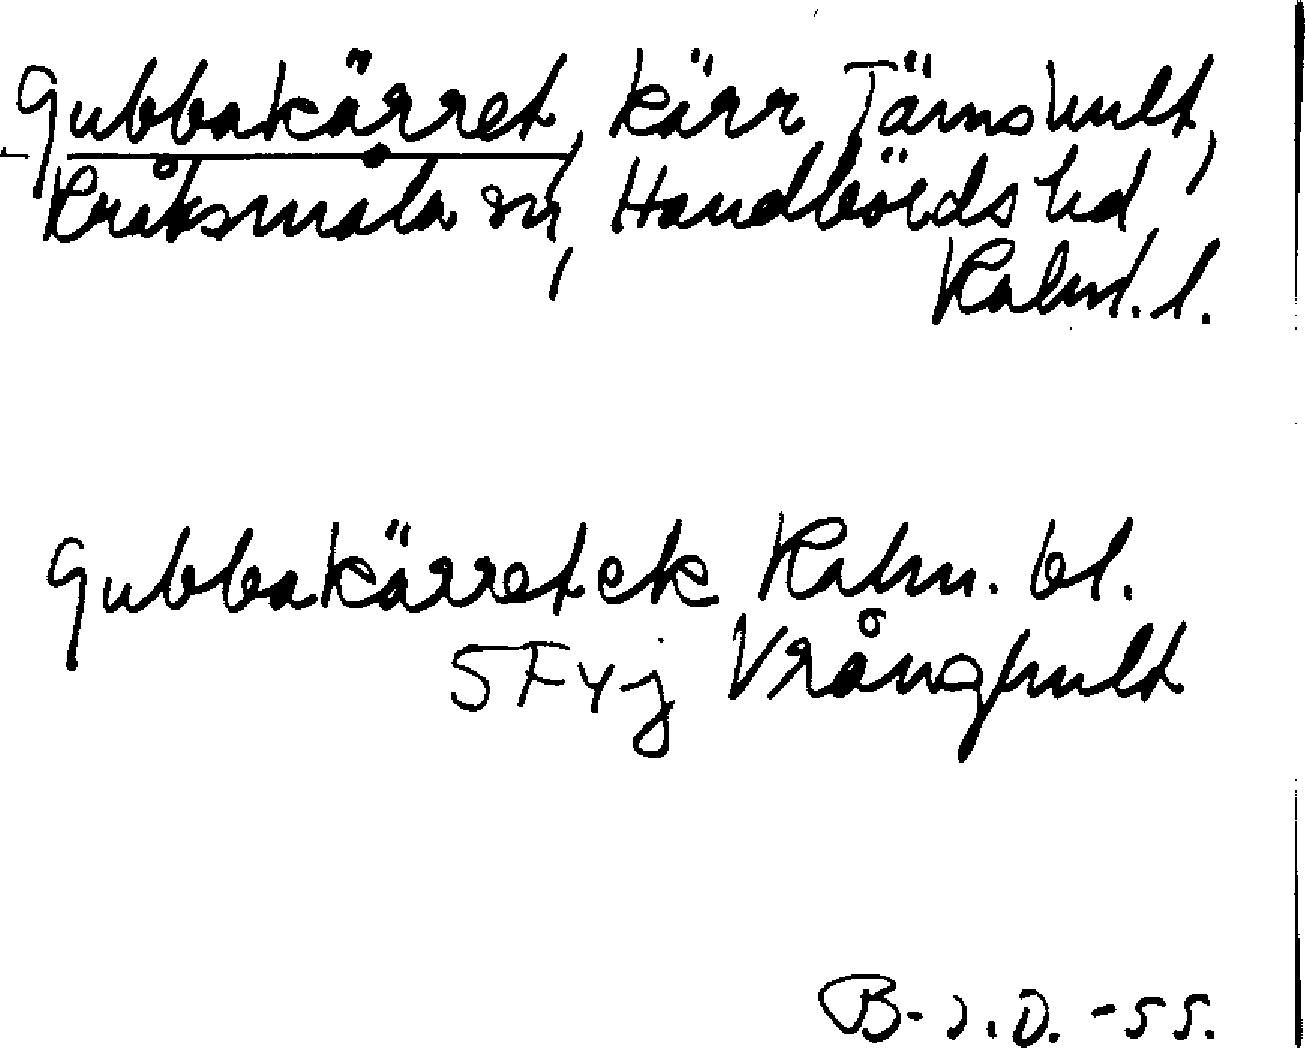 Gubbakärret, kärr Tärnshult,
Kråksmåla sn, Handbörds hd,
Kalm. l.
Gubbakärret ek Kalm. bl.
5F4j Vrånghult
B-J.D. -55.